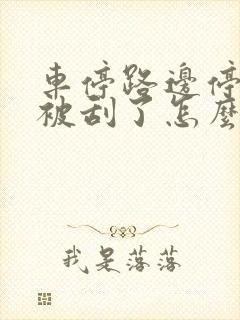 車停路邊停
被刮了怎麼
我是落落